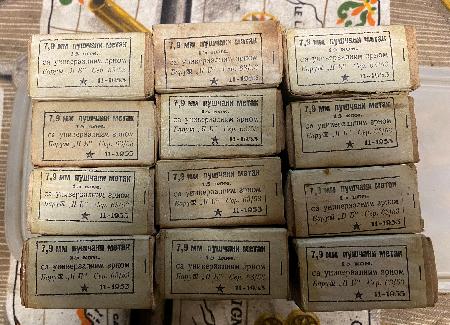 7,9 мм пушчани метак
15 ком.
са универзалним зрном
Барут „П Б“ Сер. 63/53
★ 11-1953
7,9 мм пушчани метак
15 ком.
са универзалним зрном
Барут „П Б“ Сер. 63/53
★ 11-1953
7,9 мм пушчани метак
15 ком.
са универзалним зрном
Барут „П Б“ Сер. 63/53
★ 11-1953
7,9 мм пушчани метак
15 ком.
са универзалним зрном
Барут „П Б“ Сер. 63/53
★ 11-1953
7,9 мм пушчани метак
15 ком.
са универзалним зрном
Барут „П Б“ Сер. 63/53
★ 11-1953
7,9 мм пушчани метак
15 ком.
са универзалним зрном
Барут „П Б“ Сер. 63/53
★ 11-1953
7,9 мм пушчани метак
15 ком.
са универзалним зрном
Барут „П Б“ Сер. 63/53
★ 11-1953
7,9 мм пушчани метак
15 ком.
са универзалним зрном
Барут „П Б“ Сер. 63/53
★ 11-1953
7,9 мм пушчани метак
15 ком.
са универзалним зрном
Барут „П Б“ Сер. 63/53
★ 11-1953
7,9 мм пушчани метак
15 ком.
са универзалним зрном
Барут „П Б“ Сер. 63/53
★ 11-1953
7,9 мм пушчани метак
15 ком.
са универзалним зрном
Барут „П Б“ Сер. 63/53
★ 11-1953
7,9 мм пушчани метак
15 ком.
са универзалним зрном
Барут „П Б“ Сер. 63/53
★ 11-1953